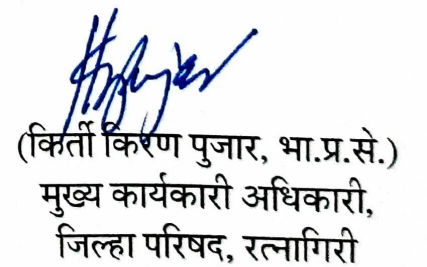 (किर्ती किरण पुजार, भा.प्र.से.)
मुख्य कार्यकारी अधिकारी,
जिल्हा परिषद, रत्नागिरी